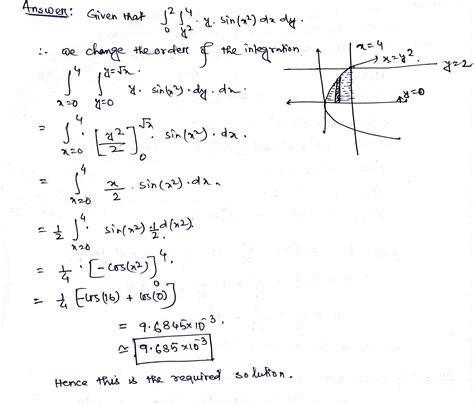 Answer: Given that ∫₀² ∫_{y²}⁴ y. sin(x²) dx dy.
∴ we change the order of the integration
∫_{x=0}^4 ∫_{y=0}^{y=√x} y. sin(x²). dy. dx.
= ∫_{x=0}^4 [y²/2]_0^{√x} . sin(x²). dx.
= ∫_{x=0}^4 x/2 . sin(x²). dx.
= 1/2 ∫_{x=0}^4 sin(x²) . 1/2 d(x²).
= 1/4 . [-cos(x²)]_0^4.
= 1/4 [-cos(16) + cos(0)]
= 9.6845x10⁻³.
≃ 9.685x10⁻³
Hence this is the required solution.
x=4
x=y².
y=2
y=0